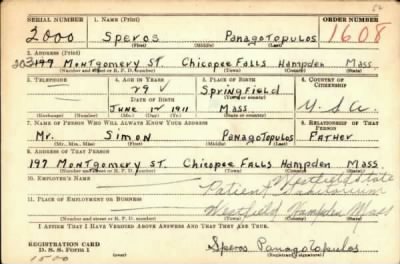 SERIAL NUMBER 1. NAME (Print) ORDER NUMBER
2000 Speros Panagotopulos 1608
(First) (Middle) (Last)
2. ADDRESS (Print)
197 Montgomery St. Chicopee Falls Hampden Mass.
(Number and street or R. F. D. number) (Town) (County) (State)
3. TELEPHONE 4. AGE IN YEARS 5. PLACE OF BIRTH 6. COUNTRY OF CITIZENSHIP
29 Springfield
DATE OF BIRTH (Town or county)
June 12 1911 Mass. U.S.A.
(Exchange) (Number) (Mo.) (Day) (Yr.) (State or country)
7. NAME OF PERSON WHO WILL ALWAYS KNOW YOUR ADDRESS 8. RELATIONSHIP OF THAT PERSON
Mr. Simon Panagotopulos Father
(Mr., Mrs., Miss) (First) (Middle) (Last)
9. ADDRESS OF THAT PERSON
197 Montgomery St. Chicopee Falls Hampden Mass
(Number and street or R. F. D. number) (Town) (County) (State)
10. EMPLOYER'S NAME Westfield State
Patient Sanitorium
11. PLACE OF EMPLOYMENT OR BUSINESS
Westfield Hampden Mass
(Number and street or R. F. D. number) (Town) (County) (State)
I AFFIRM THAT I HAVE VERIFIED ABOVE ANSWERS AND THAT THEY ARE TRUE.
REGISTRATION CARD
D. S. S. Form 1 Speros Panagotopulos